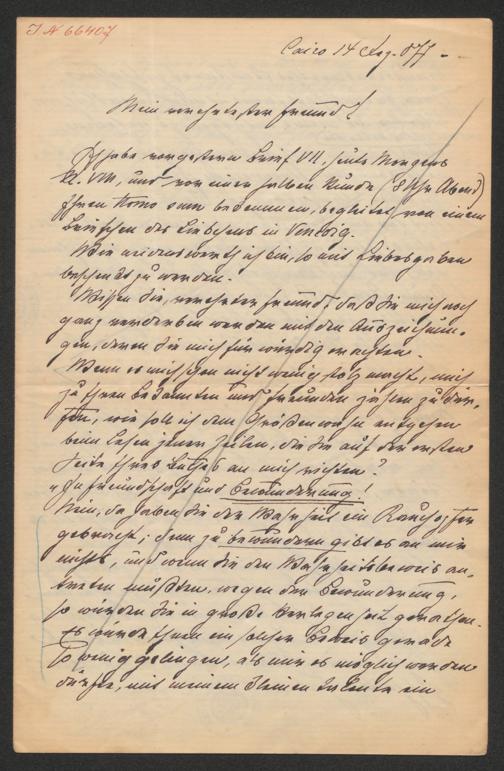 I N 66407
Cairo 14 Dez. 877 -
Mein verehrtester Freund!
Ich habe vorgestern Brief VII. heute Morgens
VIII, und vor einer halben Stunde (8 Uhr Abend)
Ihren Homo sum bekommen, begleitet von einem
Briefchen des Liebchens in Venedig.
Wie neidenswerth ich bin, so mit Liebesgaben
beschenkt zu werden.
Wissen Sie, verehrter Freund, daß Sie mich noch
ganz verderben werden mit den Auszeichnun-
gen, deren Sie mich für würdig erachten.
Wenn es mich schon nicht wenig stolz macht, mich
zu Ihren Bekannten und Freunden zählen zu dür-
fen, wie soll ich dem Größenwahn entgehen
beim Lesen jener Zeilen, die Sie auf der ersten
Seite Ihres Buches an mich richten?
"In Freundschaft und Bewunderung!
Nein, da haben Sie der Wahrheit ein Rauchopfer
gebracht; denn zu bewundern gibt es an mir
nichts, und wenn Sie den Wahrheitsbeweis an-
treten müßten, wegen der Bewunderung,
so würden Sie in große Verlegenheit gerathen.
Es würde Ihnen ein solcher Beweis gerade
so wenig gelingen, als mir es möglich werden
dürfte, mit meinem kleinen Talente ein